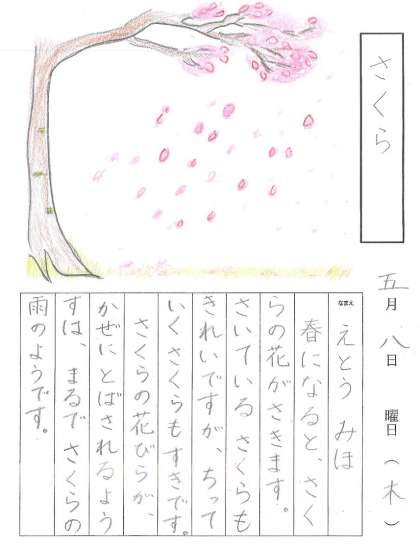 さくら
五月八日 曜日(木)
なまえ
えとう みほ
春になると、さく
らの花がさきます。
さいている さくらも
きれいですが、ちって
いく さくらもすきです。
さくらの花びらが、
かぜに とばされるよう
すは、まるで さくらの
雨のようです。